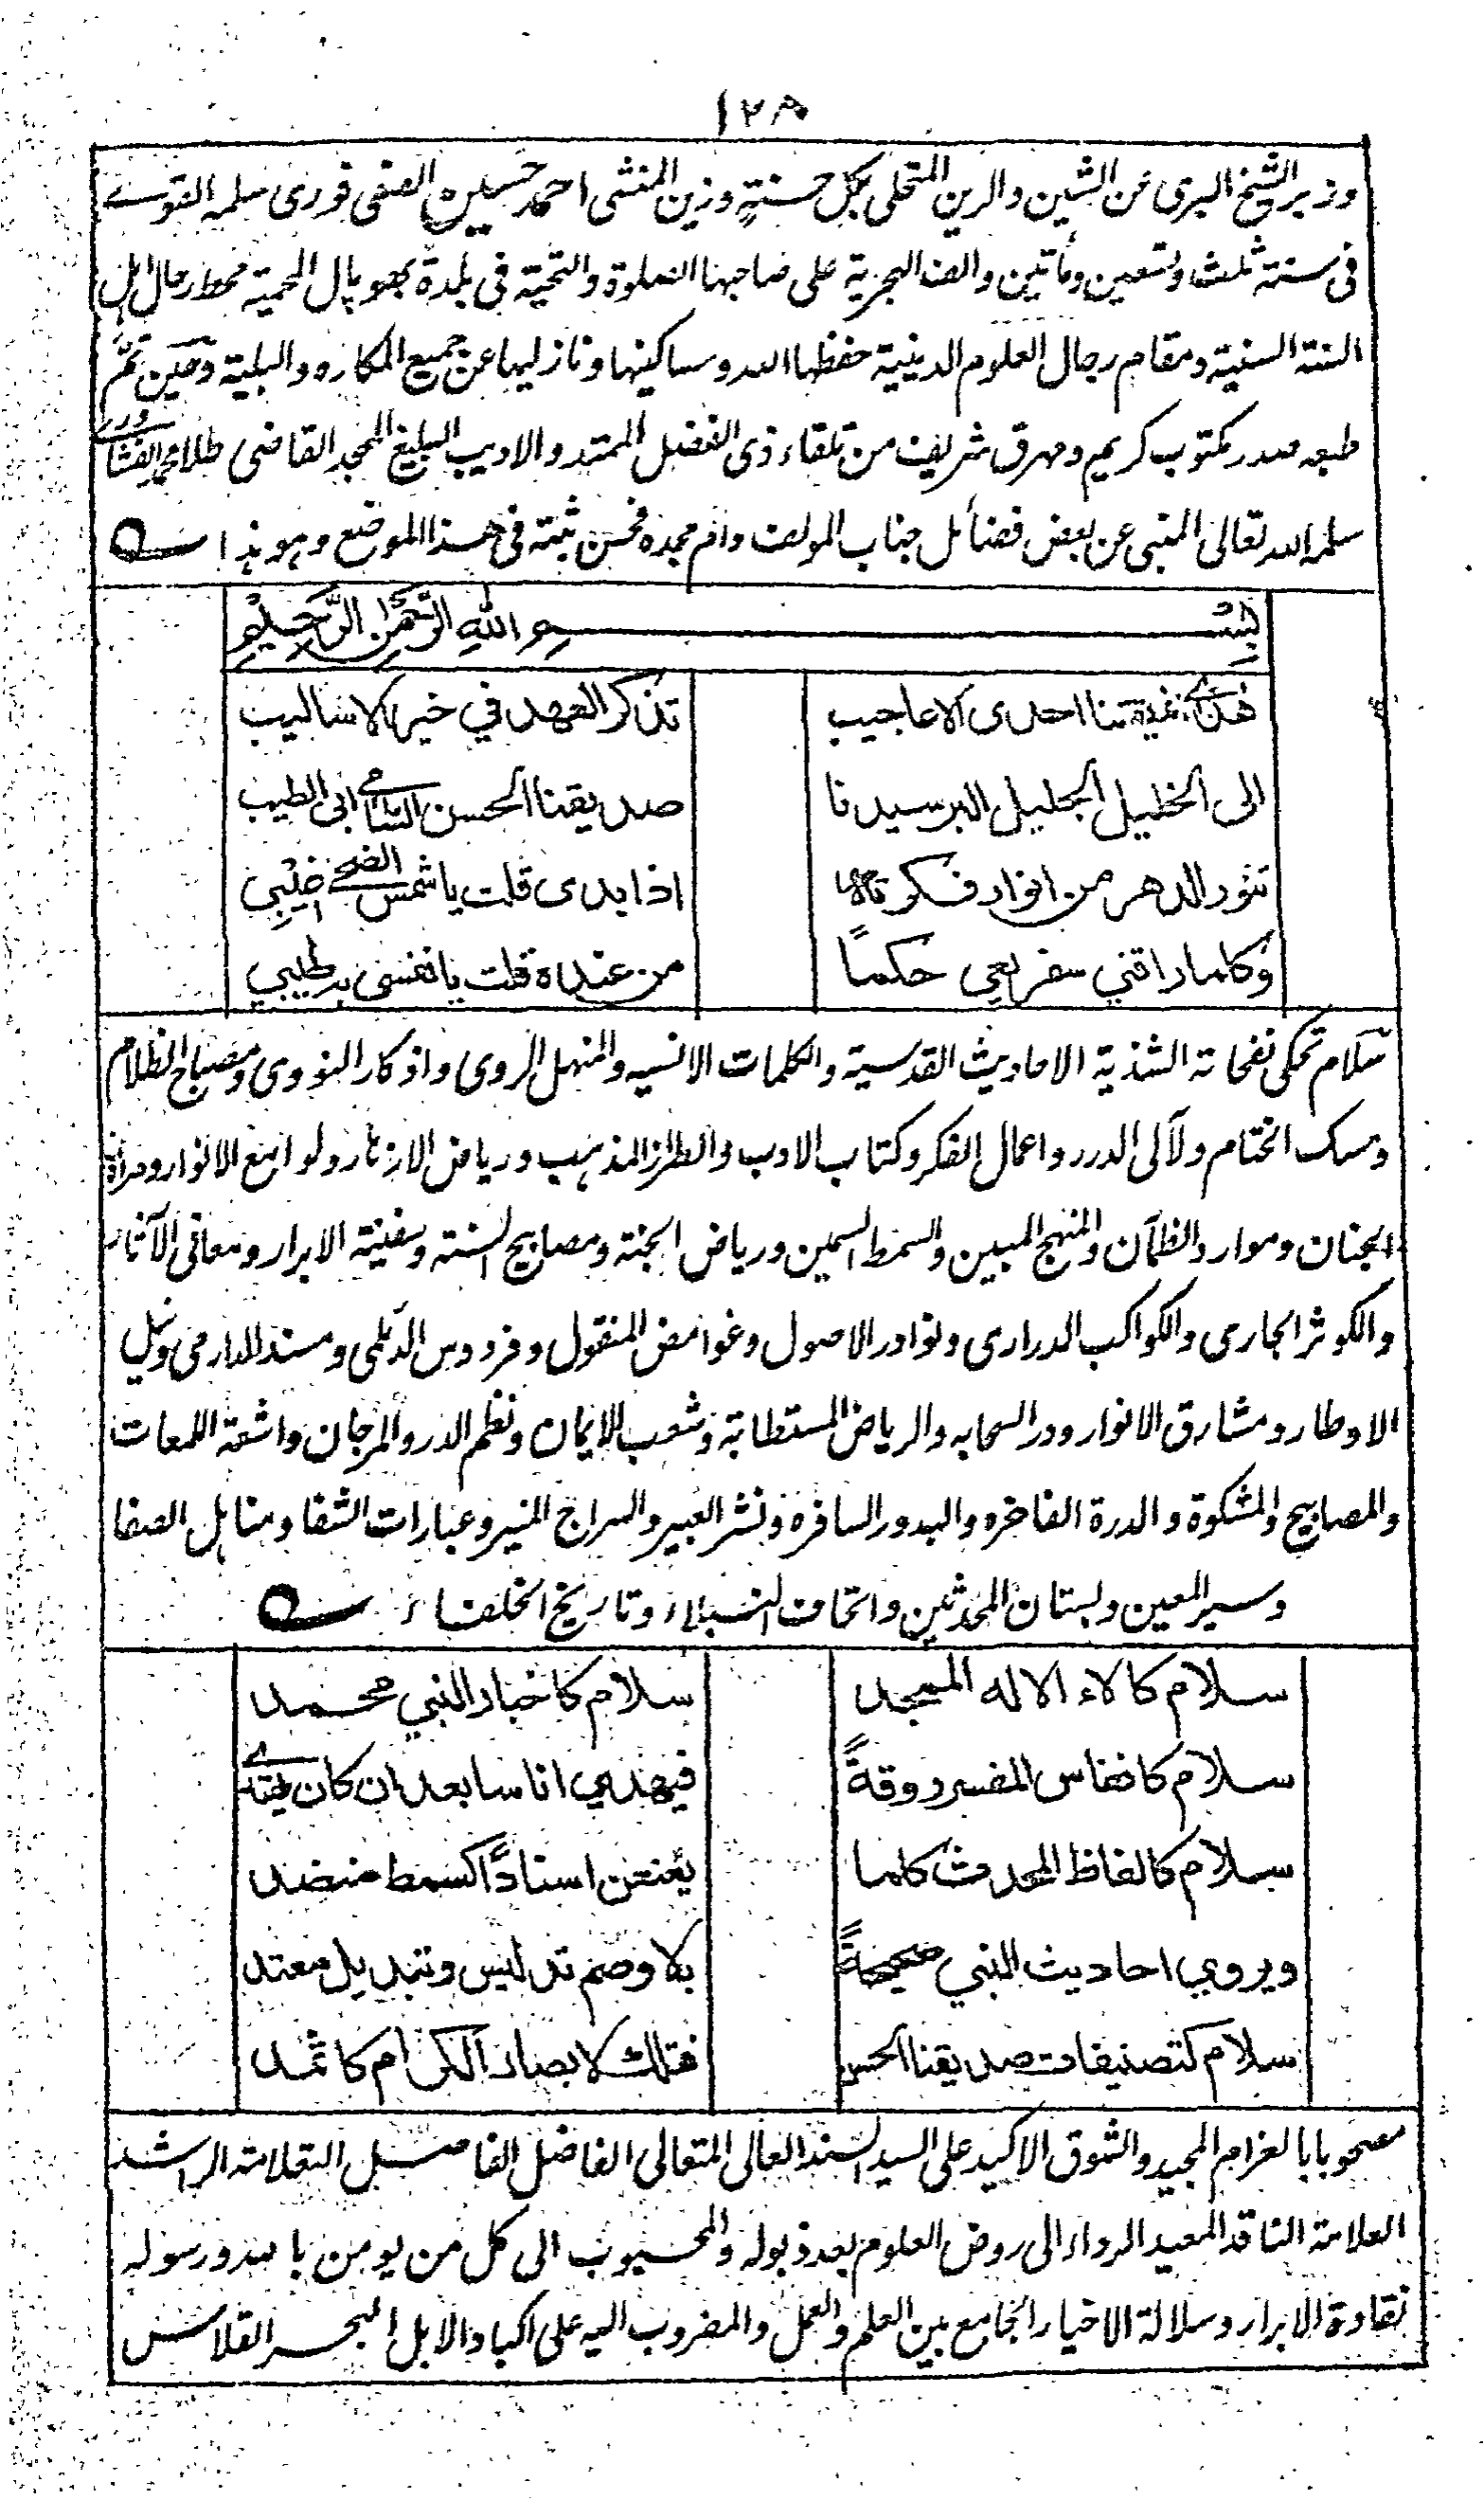 ١٢٨
وزير الشيخ البرى عن الشين والرين المتحلى بكل حسنةٍ وزين المنشى احمد حسين الصفى فورى سلمه القوے
فى سنة ثلث وتسعين ومأتين والف الهجرية على صاحبها الصلوة والتحية فى بلدة بهوپال المحمية محط رحال اهل
السنة السنية ومقام رجال العلوم الدينية حفظها الله وساكنيها ونازليها عن جميع المكاره والبلية وحين تمَّ
طبعه صدر مكتوب كريم ومهرق شريف من تلقاء ذى الفضل الممتد والاديب البليغ المجد القاضى طلا محمد الفشاورى
سلمه الله تعالى المنبى عن بعض فضائل جناب المولف دام مجده فحسن ثبته فى هذا الموضع وهو هذا
بسم الله الرحمن الرحيم
هذى نميقتنا احدى الاعاجيب تذكر العهد في خير الاساليب
الى الخليل الجليل البر سيدنا صديقنا الحسن السامي ابى الطيب
تنور الدهر من انوار فكرته اذا بدى قلت يا شمس الضحى غيبي
وكلما راقني سفر يعي حكماً من عنده قلت يا نفسى به طيبي
سلام تحكى نفحاته الشذية الاحاديث القدسية والكلمات الانسيه والمنهل الروى واذكار النووى ومصباح الظلام
ومسك الختام ولآلى الدرر واعمال الفكر وكتاب الادب والطراز المذهب ورياض الازهار ولوامع الانوار ومرأة
الجنان وموارد الظمآن والمنهج المبين والسمط الثمين ورياض الجنة ومصابيح السنة وسفينة الابرار ومعانى الآثار
والكوثر الجارى والكواكب الدرارى ونوادر الاصول وغوامض المنقول وفردوس الديلمى ومسند الدارمى ونيل
الاوطار ومشارق الانوار ودر السحابه والرياض المستطابة وشعب الايمان ونظم الدر والمرجان واشعة اللمعات
والمصابيح والمشكوة والدرة الفاخره والبدور السافره ونشر العبير والسراج المنير وعبارات الشفا ومناهل الصفا
وسير المعين وبستان المحدثين واتحاف النبلاء وتاريخ الخلفاء
سلام كالاء الاله الممجد سلام كاخبار النبي محمد
سلام كانفاس المفسر دوقةً فيهدي اناسا بعد ان كان
سلام كالفاظ المحدث كلما يعنعن اسناداً كسمط منضد
ويروي احاديث النبي صحيحةً بلا وصم تدليس وتبديل معتد
سلام كتصنيفات صديقنا الحسن فتلك لابصار الكرام كاثمد
مصحوبا بالغرام المجيد والشوق الاكيد على السيد السند العالى المتعالى الفاضل الفاصل التعلامة الراشد
العلامة الناقد المعيد الرواء الى روض العلوم بعد ذبوله والمحبوب الى كل من يومن بالله ورسوله
نقاوة الابرار وسلالة الاخيار الجامع بين العلم والعمل والمضروب اليه على اكباد الابل البحر القلامس